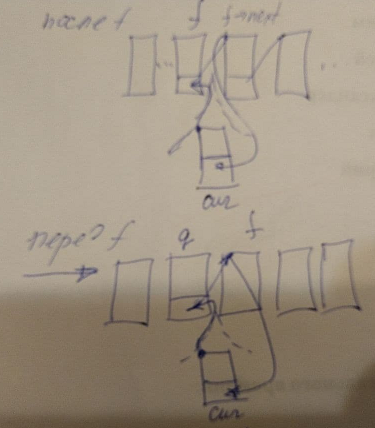 после f f f→next
cur
перед f q f
cur